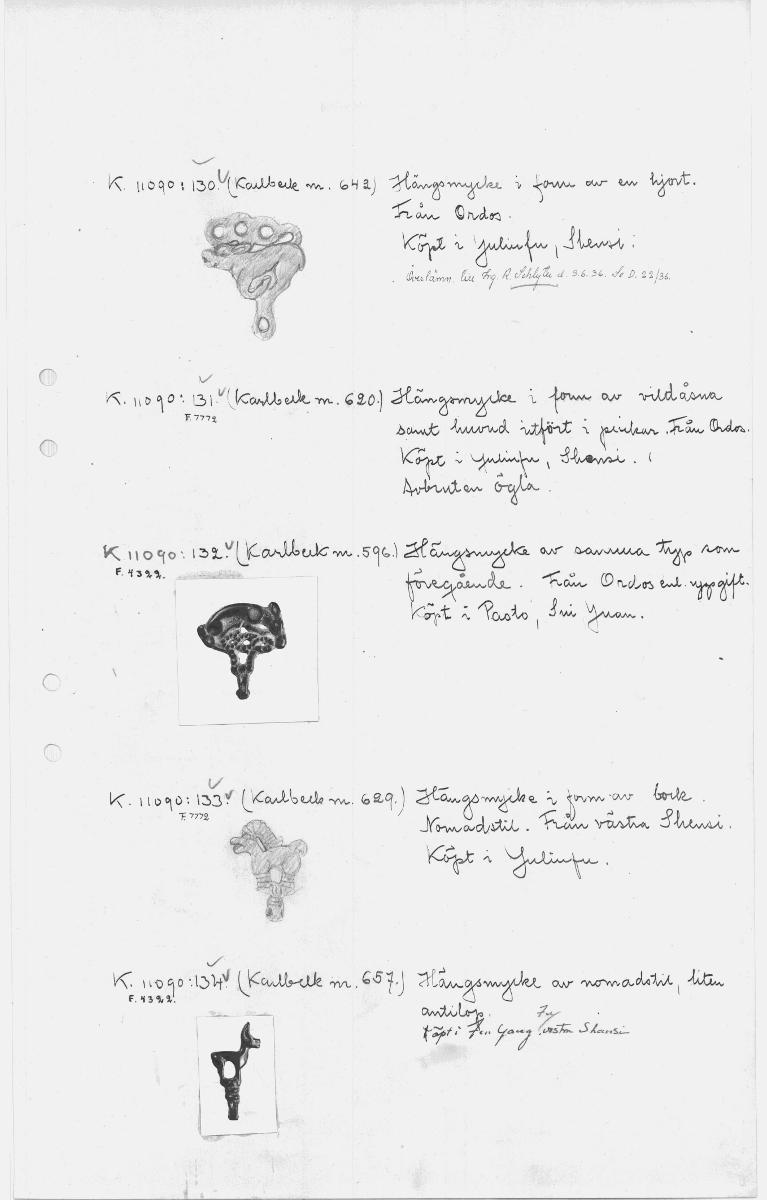 K. 11090:130. (Karlbeck nr. 642) Hängsmycke i form av en hjort.
Från Ordos.
Köpt i Yulinfu, Shensi.
Överlämn. till Frg. R. Schlyter d. 9.6.36. Se D. 22/36.
K. 11090:131. (Karlbeck nr. 620.) Hängsmycke i form av vildåsna
F. 7772
samt huvud utfört i prickar. Från Ordos.
Köpt i Yulinfu, Shensi.
Avbruten ögla.
K 11090:132. (Karlbeck nr. 596.) Hängsmycke av samma typ som
F. 4322.
föregående. Från Ordos enl. uppgift.
Köpt i Paoto, Sui Yuan.
K. 11090:133. (Karlbeck nr. 629.) Hängsmycke i form av bock.
F. 7772
Nomadstil. Från västra Shensi.
Köpt i Yulinfu.
K. 11090:134. (Karlbeck nr. 657.) Hängsmycke av nomadstil, liten
F. 4322.
antilop. Fu
Köpt i Fen Yang västra Shansi